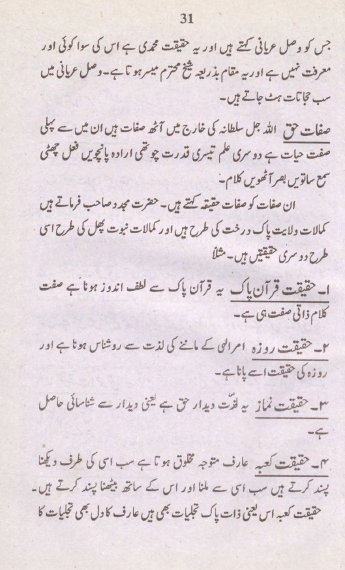 31
جس کو وصل عریانی کہتے ہیں اور یہ حقیقت محمدی ہے اس کی سوا کوئی اور
معرفت نہیں ہے اور یہ مقام بذریعہ شیخ محترم میسر ہوتا ہے۔ وصل عریانی میں
سب حجابات ہٹ جاتے ہیں۔
صفات حق اللہ جل سلطانہ کی خارج میں آٹھ صفات ہیں ان میں سے پہلی
صفت حیات ہے دوسری علم تیسری قدرت چوتھی ارادہ پانچویں فعل چھٹی
سمع ساتویں بصر آٹھویں کلام۔
ان صفات کو صفات حقیقہ کہتے ہیں۔ حضرت مجدد صاحب فرماتے ہیں
کمالات ولایت پاک درخت کی طرح ہیں اور کمالات نبوت پھل کی طرح اسی
طرح دوسری حقیقتیں ہیں۔ مثلاً
۱۔ حقیقت قرآن پاک یہ قرآن پاک سے لطف اندوز ہونا ہے صفت
کلام ذاتی صفت ہی ہے۔
۲۔ حقیقت روزہ امرالٰہی کے ماننے کی لذت سے روشناس ہونا ہے اور
روزہ کی حقیقت اسے پانا ہے۔
۳۔ حقیقت نماز یہ لذت دیدار حق ہے یعنی دیدار سے شناسائی حاصل
ہے۔
۴۔ حقیقت کعبہ عارف متوجہ مخلوق ہوتا ہے سب اسی کی طرف دیکھنا
پسند کرتے ہیں سب اسی سے ملنا اور اس کے ساتھ بیٹھنا پسند کرتے ہیں۔
حقیقت کعبہ اس یعنی ذات پاک تجلیات بھی ہیں عارف کا دل بھی تجلیات کا